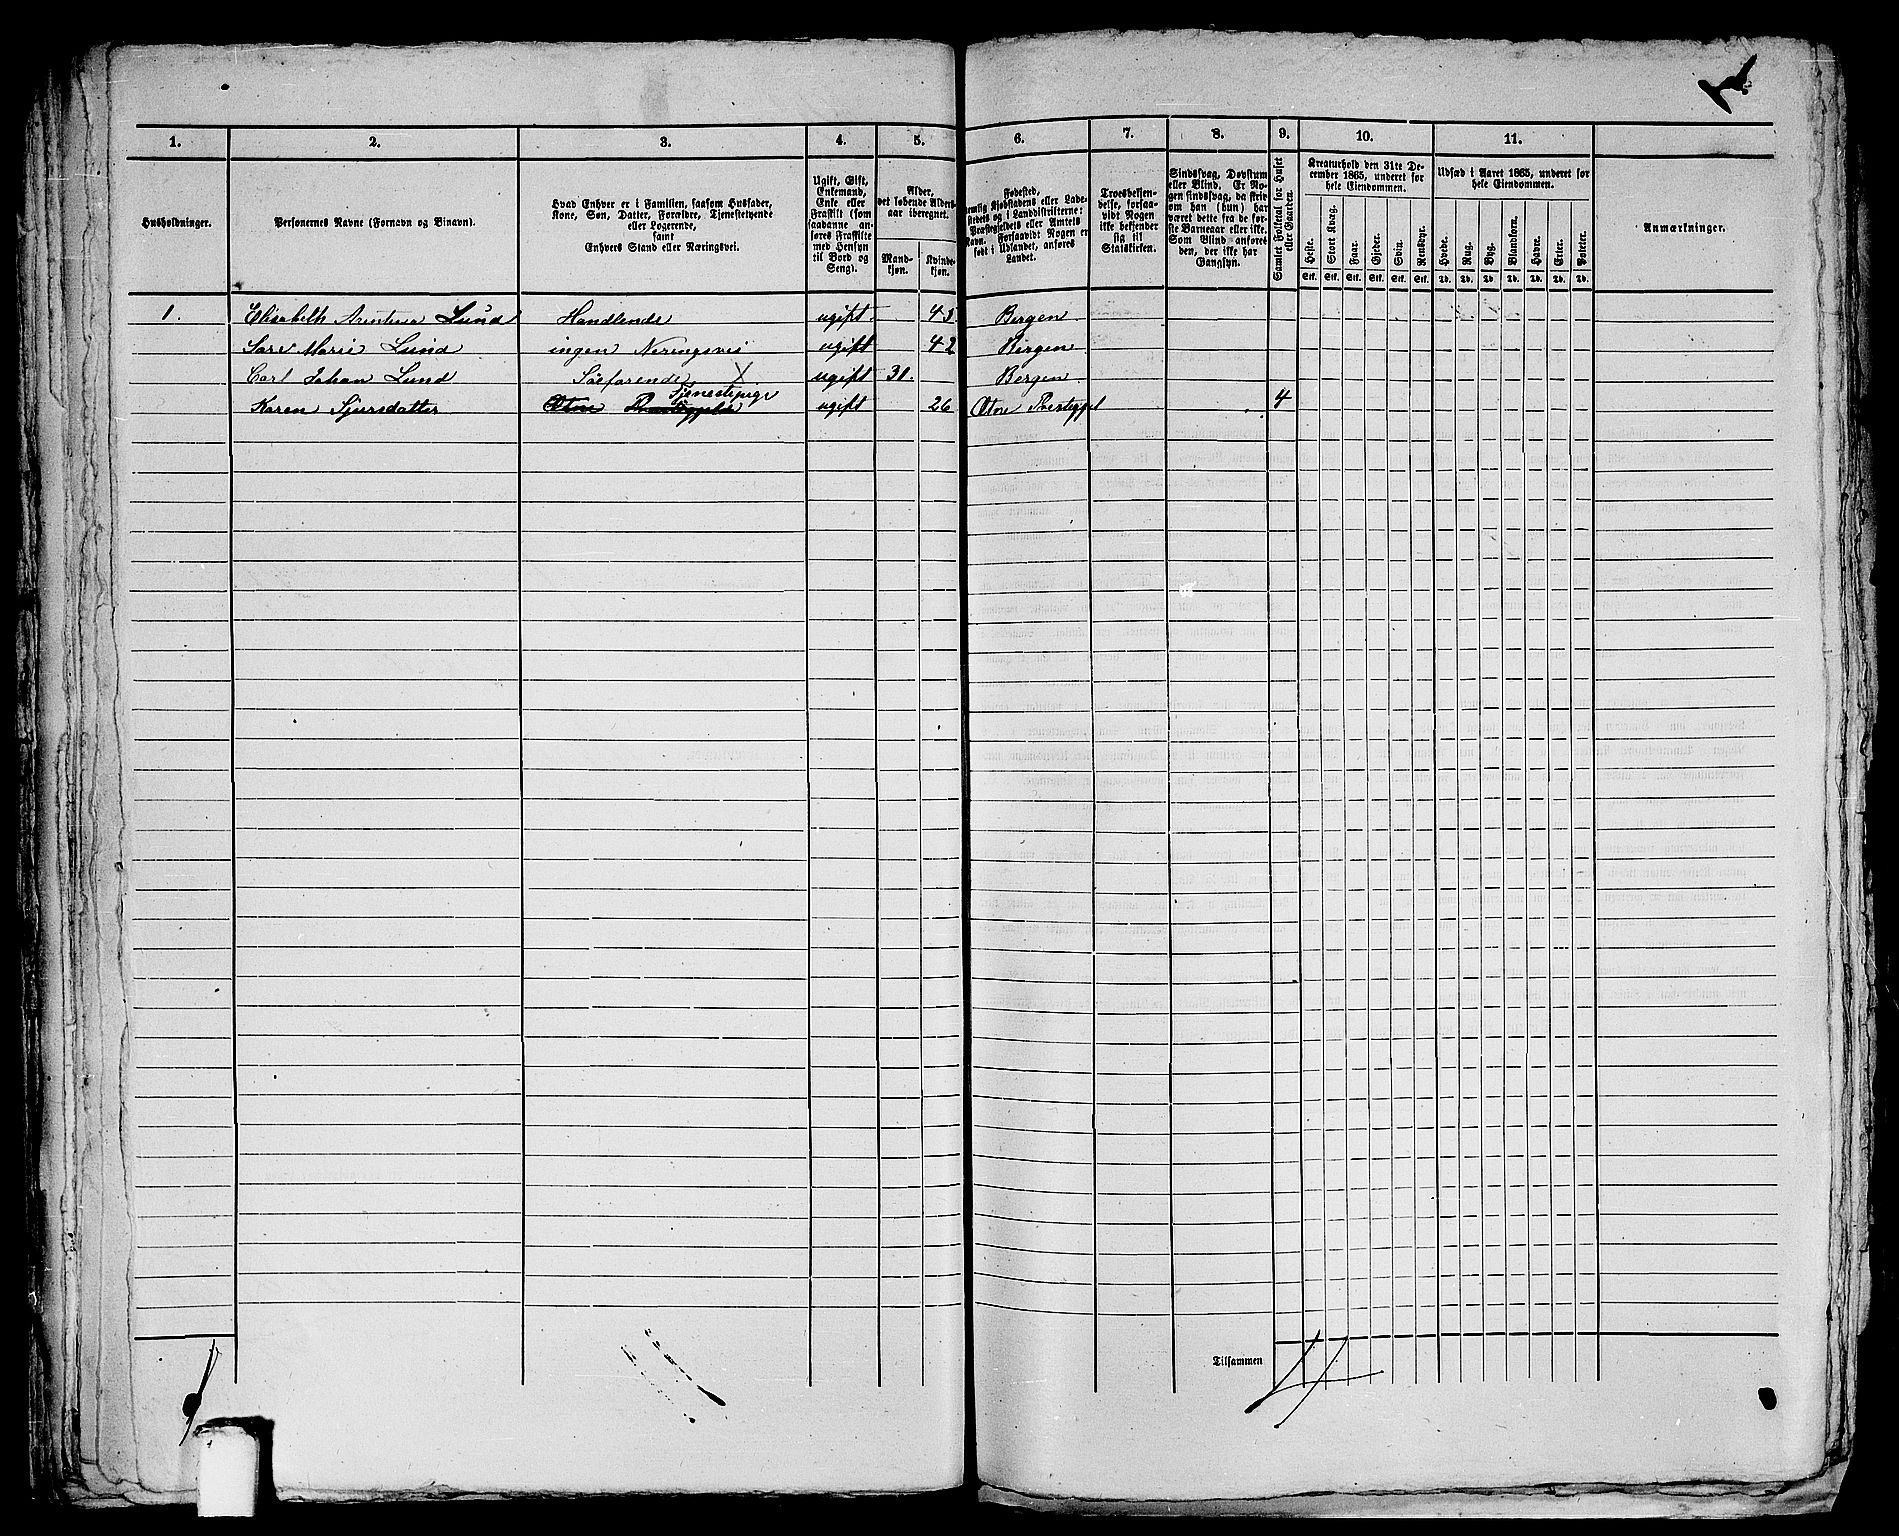 1. 2. 3. 4. 5. 6. 7. 8. 9. 10. 11.
Husholdninger.
Personernes Navne (Fornavn og Binavn).
Hvad Enhver er i Familien, saasom Husfader,
Kone, Søn, Datter, Forældre, Tjenestetyende
eller Logerende,
samt
Enhvers Stand eller Næringsvei.
Ugift, Gift,
Enkemand,
Enke eller
Fraskilt (som
saadanne an-
føres Fraskilte
med Hensyn
til Bord og
Seng).
Alder,
det løbende Alders-
aar iberegnet.
Mand-
kjøn.
Kvinde-
kjøn.
Fødested,
nemlig Kjøbstadens eller Lade-
stedets og i Landdistrikterne:
Præstegjeldets eller Amtets
Navn. Forsaavidt Nogen er
født i Udlandet, anføres
Landet.
Troesbekjen-
delse, forsaa-
vidt Nogen
ikke bekjender
sig til
Statskirken.
Sindssvag, Døvstum
eller Blind. Er No-
gen sindssvag, da skriv
om han (hun) har
været dette fra de før-
ste Barneaar eller ikke.
Som Blind anføres
den, der ikke har
Gangsyn.
Samlet Folketal for Huset
eller Gaarden.
Kreaturhold den 31te De-
cember 1865, underet for
hele Eiendommen.
Heste. Stort Kvæg. Faar. Gjeder. Svin. Rensdyr.
Stk. Stk. Stk. Stk. Stk. Stk.
Udsæd i Aaret 1865, underet for
hele Eiendommen.
Hvede. Rug. Byg. Blandkorn. Havre. Erter. Poteter.
Td. Td. Td. Td. Td. Td. Td.
Anmærkninger.
1. Elisabeth Lund Handlende ugift. 43. Bergen
Maris Lund ingen Neringsvei ugift 42 Bergen
Carl Johan Lund Søefarende X ugift 31. Bergen
Tjenestepige
Karen Sjursdatter ugift 26 4
Tilsammen 4